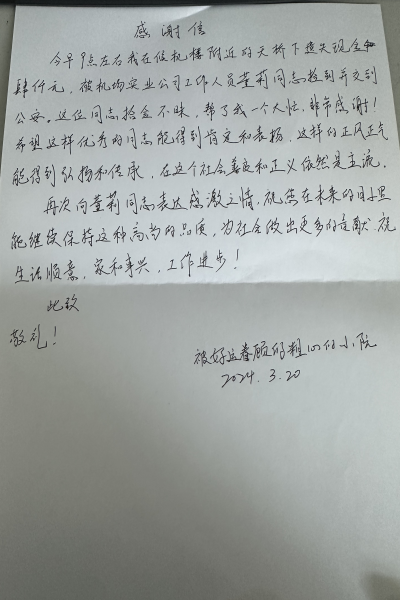 感谢信
今早9点左右我在候机楼附近的天桥下遗失现金
肆仟元，被机场实业公司工作人员董莉同志捡到并交到
公安。这位同志拾金不昧，帮了我一个大忙，非常感谢！
希望这样优秀的同志能得到肯定和表扬，这样的正风正气
能得到弘扬和传承，在这个社会善良和正义依然是主流。
再次向董莉同志表达感激之情，祝您在未来的日子里
能继续保持这种高尚的品质，为社会做出更多的贡献，祝
生活顺意，家和事兴，工作进步！
此致
敬礼！
被好运眷顾的粗心的小阮
2024.3.20